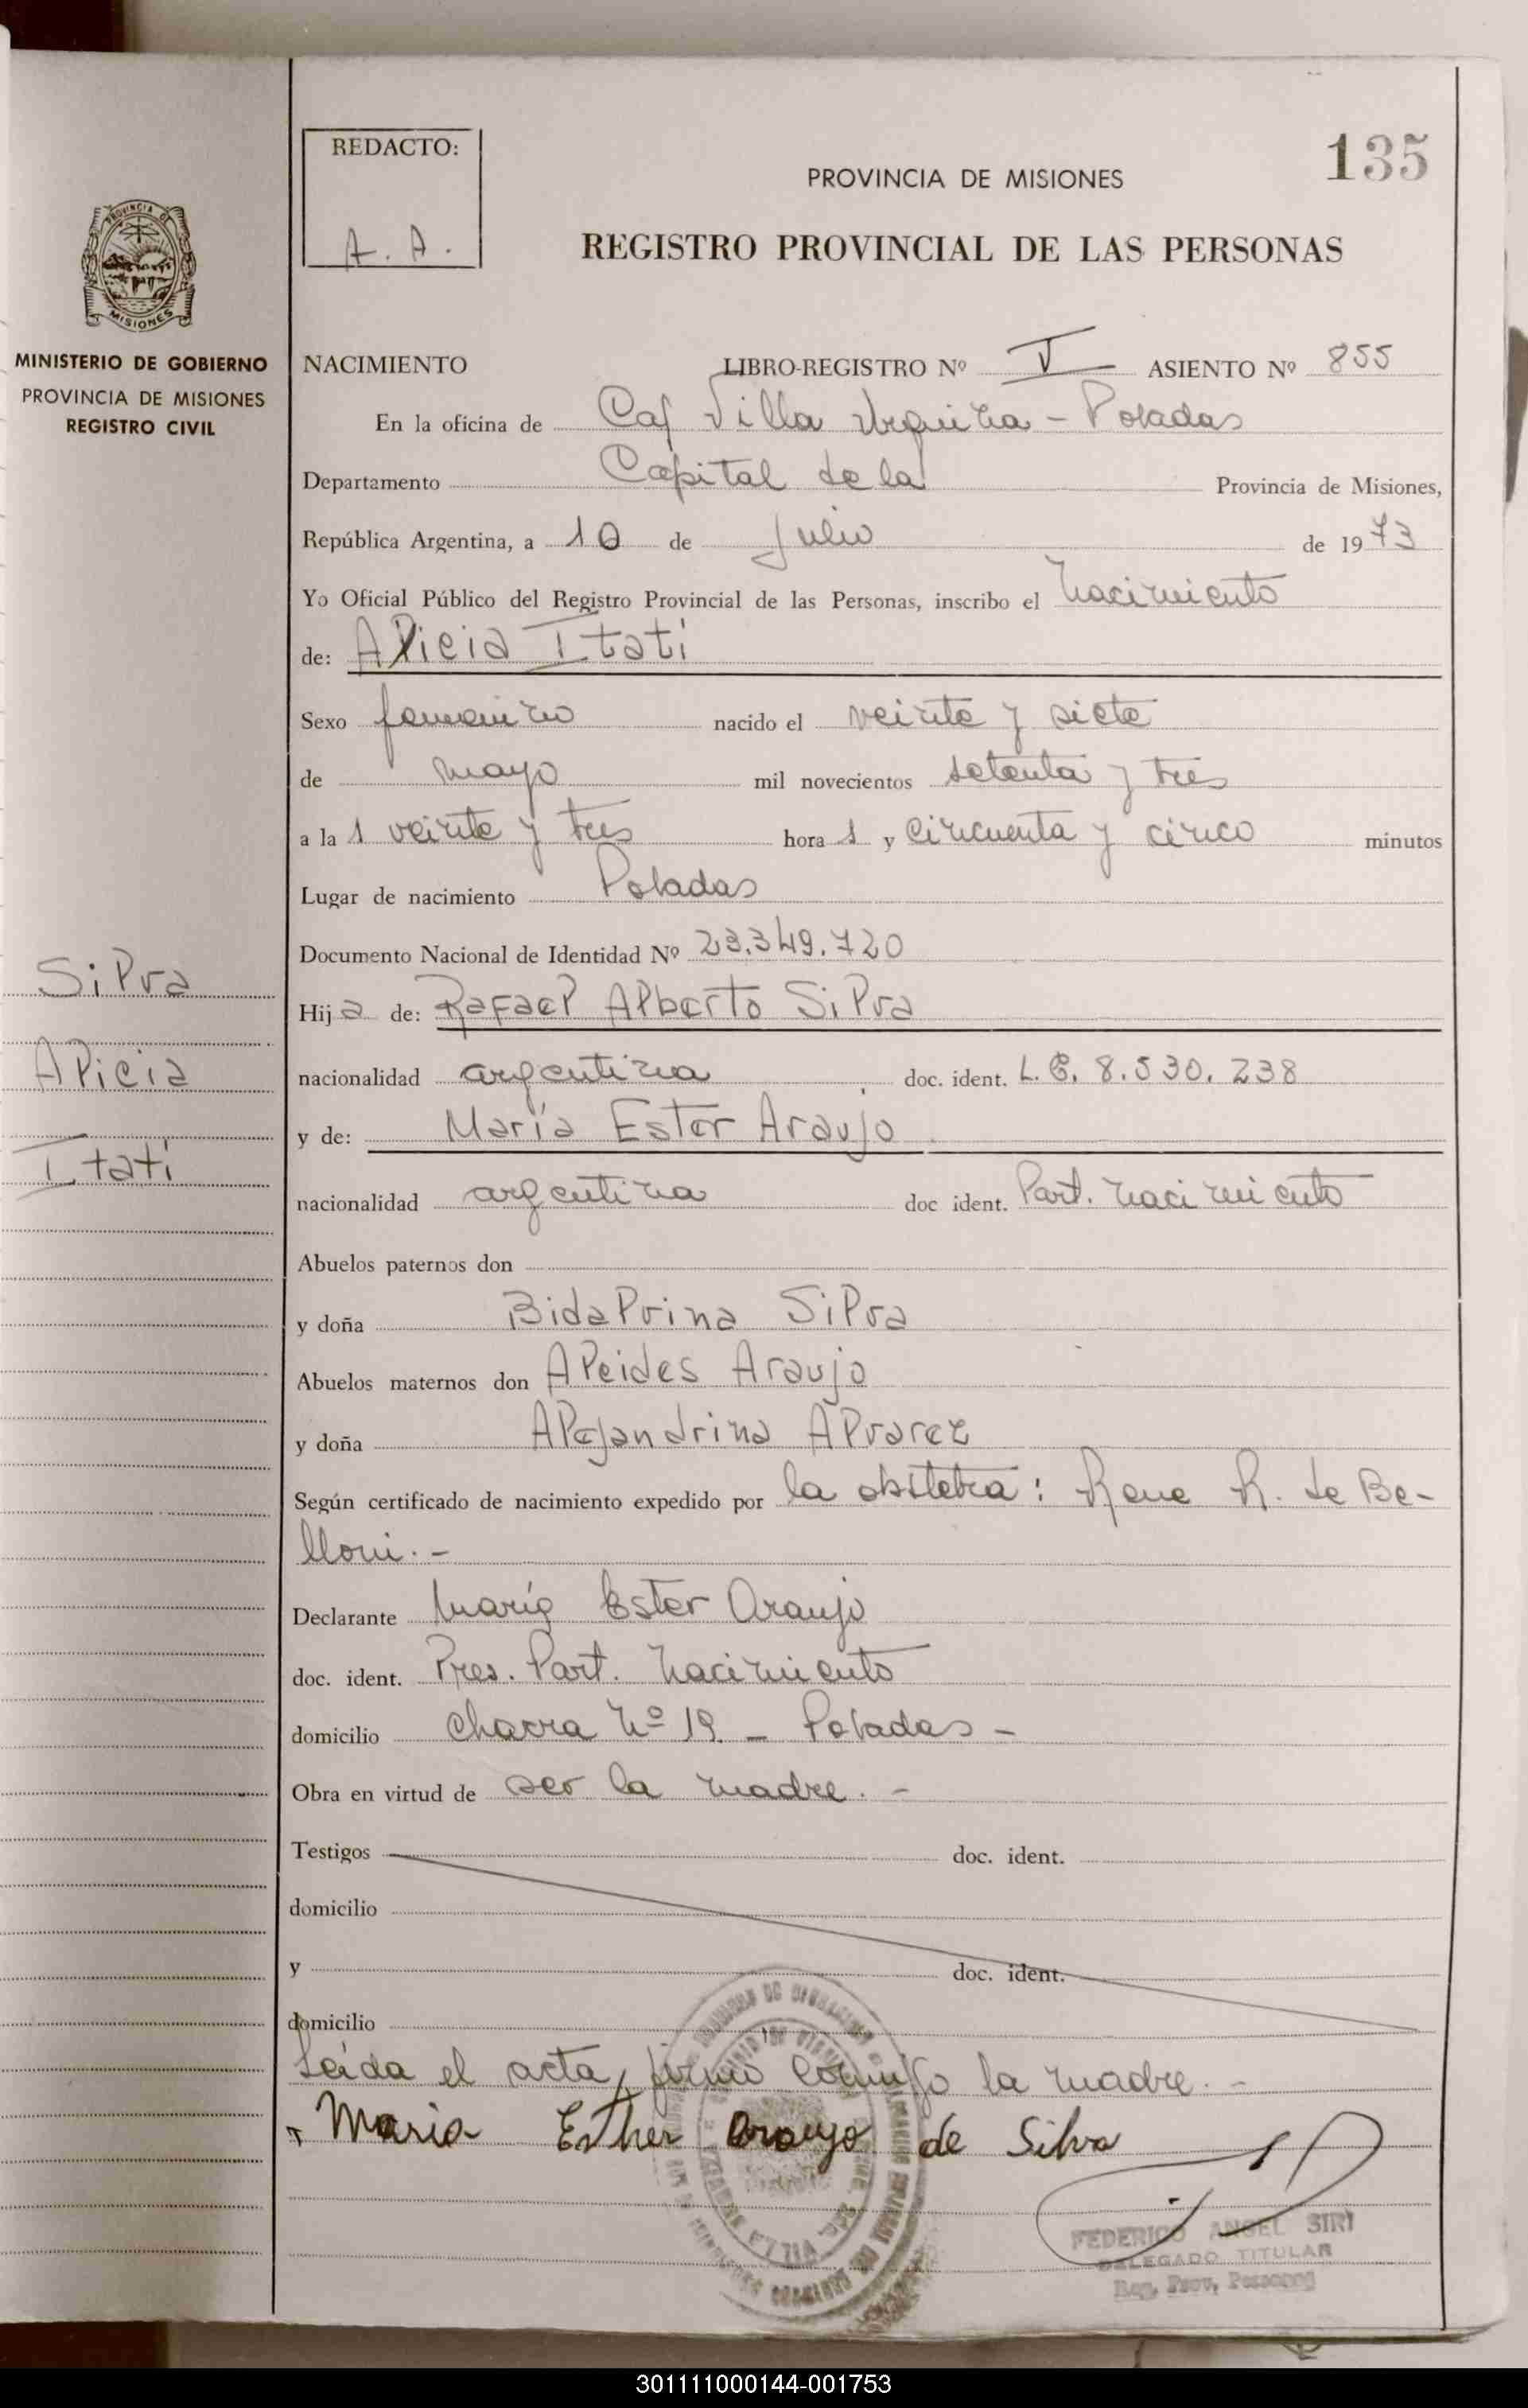 135
REDACTO:
A. A.
PROVINCIA DE MISIONES
REGISTRO PROVINCIAL DE LAS PERSONAS
MISIONES
MINISTERIO DE GOBIERNO
PROVINCIA DE MISIONES
REGISTRO CIVIL
NACIMIENTO LIBRO-REGISTRO Nº I ASIENTO Nº 855
En la oficina de Caf Villa Urquiza - Posadas
Departamento Capital de la Provincia de Misiones,
República Argentina, a 10 de Julio de 1973
Yo Oficial Público del Registro Provincial de las Personas, inscribo el nacimiento
de: Alicia Itatí
Sexo femenino nacido el veinte y siete
de mayo mil novecientos setenta y tres
a la s veinte y tres hora s y cincuenta y cinco minutos
Lugar de nacimiento Posadas
Documento Nacional de Identidad Nº 23.349.720
Hij a de: Rafael Alberto Silva
nacionalidad argentina doc. ident. L.E. 8.530.238
y de: María Ester Araujo
nacionalidad argentina doc ident. Part. nacimiento
Abuelos paternos don
y doña Bidalvina Silva
Abuelos maternos don Alcides Araujo
y doña Alejandrina Alvarez
Según certificado de nacimiento expedido por la obstetra: Rene R. de Be-
lloni.-
Declarante María Ester Araujo
doc. ident. Pres. Part. nacimiento
domicilio chacra Nº 19 - Posadas -
Obra en virtud de ser la madre. -
Testigos doc. ident.
domicilio
y doc. ident.
domicilio
Leída el acta, firmó conmigo la madre. -
Maria Esther Araujo de Silva
FEDERICO ANGEL SIRI
DELEGADO TITULAR
Reg. Prov. Personas
Silva
Alicia
Itatí
301111000144-001753